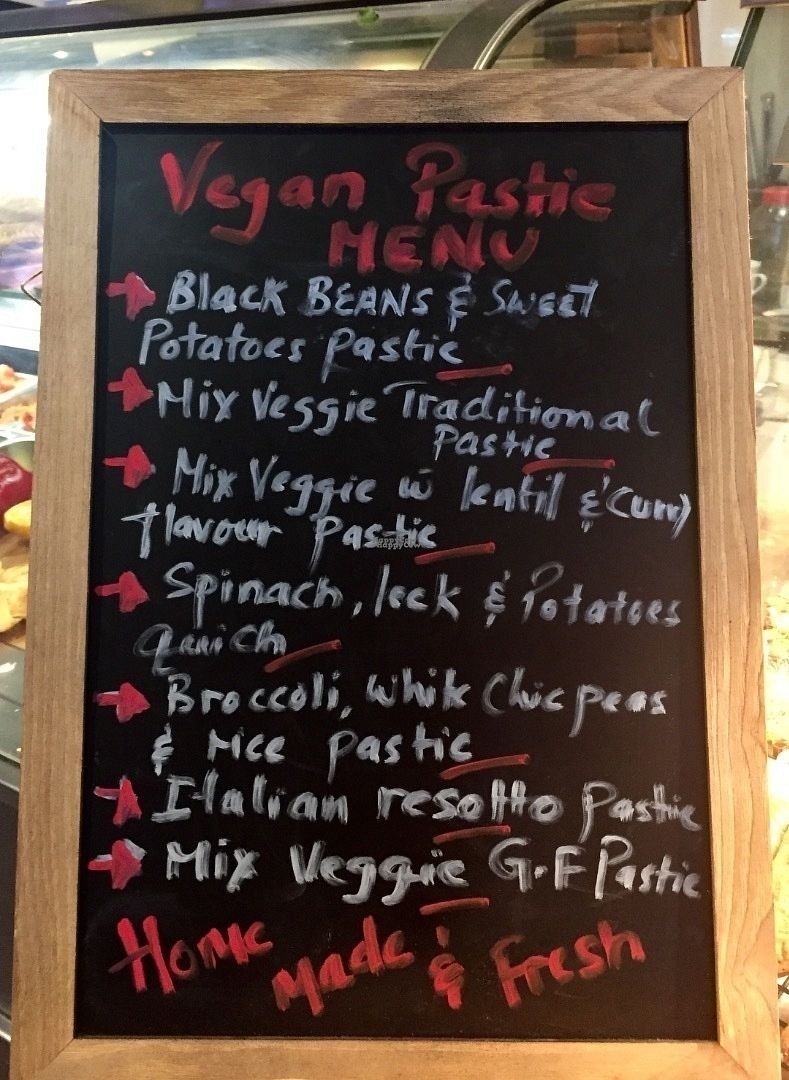 Vegan Pastie
MENU
Black BEANS & Sweet
Potatoes pastie
Mix Veggie Traditional
Pastie
Mix Veggie w lentil & Curry
flavour pastie
Spinach, leek & Potatoes
quich
Broccoli, white Chic peas
& rice pastie
Italian resotto pastie
Mix Veggie G.F Pastie
Home
made & Fresh
HappyCow